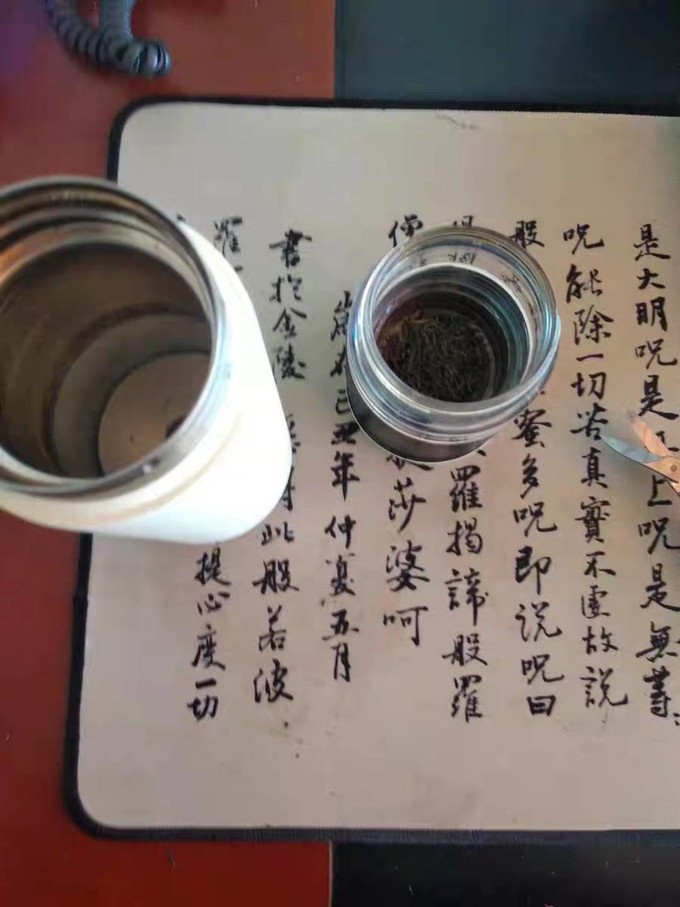 是大明呪是上呪是無等
呪能除一切苦真實不虛故說
般蜜多呪即说呪曰
羅揭諦般羅
僧莎婆呵
歲在己丑年仲夏五月
書於金陵此般若波
羅提心度一切